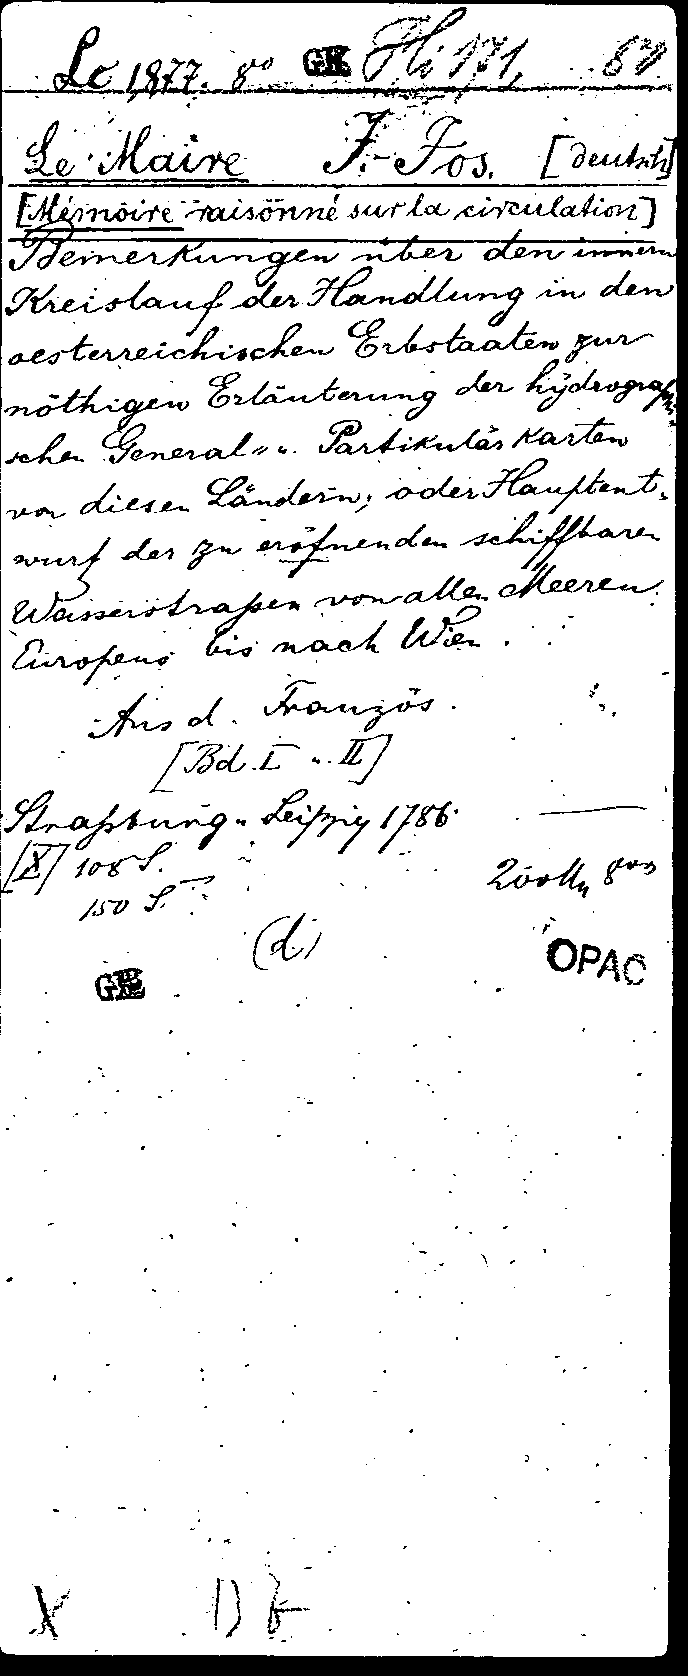 Le 1877. 8° GK Hi 171,
Le Maire J. Jos. [deutsch]
[Mémoire raisonné sur la circulation]
Bemerkungen über den innern
Kreislauf der Handlung in den
oesterreichischen Erbstaaten zur
nöthigen Erläuterung der hydrographi-
schen General- u. Partikulär Karten
von diesen Ländern; oder Hauptent-
wurf der zu eröfnenden schiffbaren
Wasserstraßen von allen Meeren
Europens bis nach Wien.
Aus d. Französ.
[Bd. I u. II]
Straßburg u. Leipzig 1786
[X] 108 S.
150 S.
(d)
GK OPAC
X